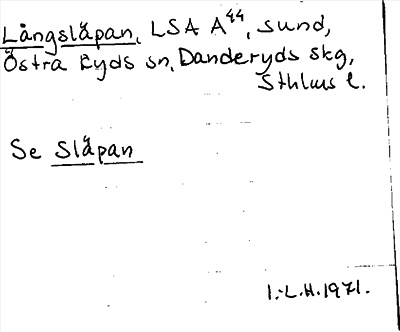 Långsläpan, LSA A⁴⁴, sund,
Östra Ryds sn, Danderyds skg,
Sthlms l.
Se Släpan
I.-L.H. 1971.